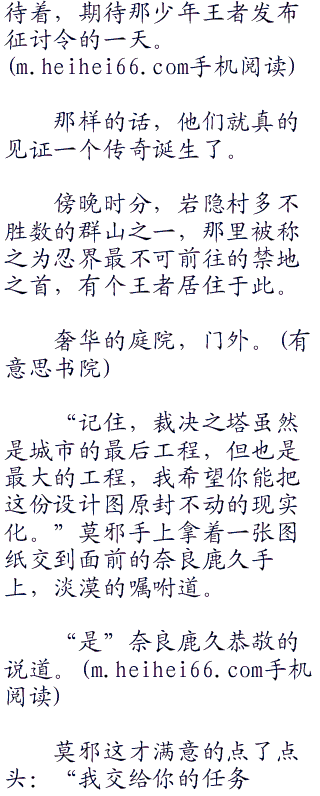 待着，期待那少年王者发布
征讨令的一天。
(m.heihei66.com手机阅读)
那样的话，他们就真的
见证一个传奇诞生了。
傍晚时分，岩隐村多不
胜数的群山之一，那里被称
之为忍界最不可前往的禁地
之首，有个王者居住于此。
奢华的庭院，门外。(有
意思书院)
“记住，裁决之塔虽然
是城市的最后工程，但也是
最大的工程，我希望你能把
这份设计图原封不动的现实
化。”莫邪手上拿着一张图
纸交到面前的奈良鹿久手
上，淡漠的嘱咐道。
“是”奈良鹿久恭敬的
说道。(m.heihei66.com手机
阅读)
莫邪这才满意的点了点
头：“我交给你的任务